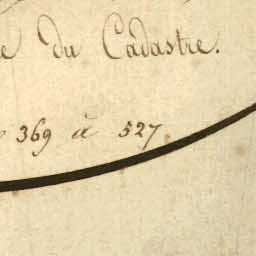 du Cadastre.
369 à 527.